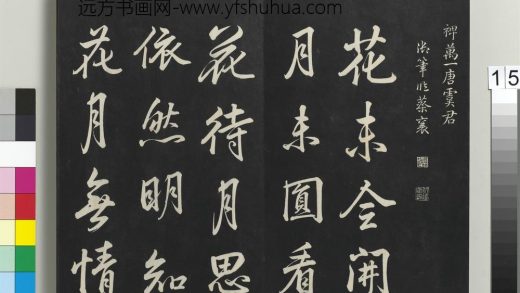 远方书画网-www.yfshuhua.com
裨萬一唐虞君
筆作蔡襄
花未全開
月未圓看
花待月思
依然明知
花月無情
15